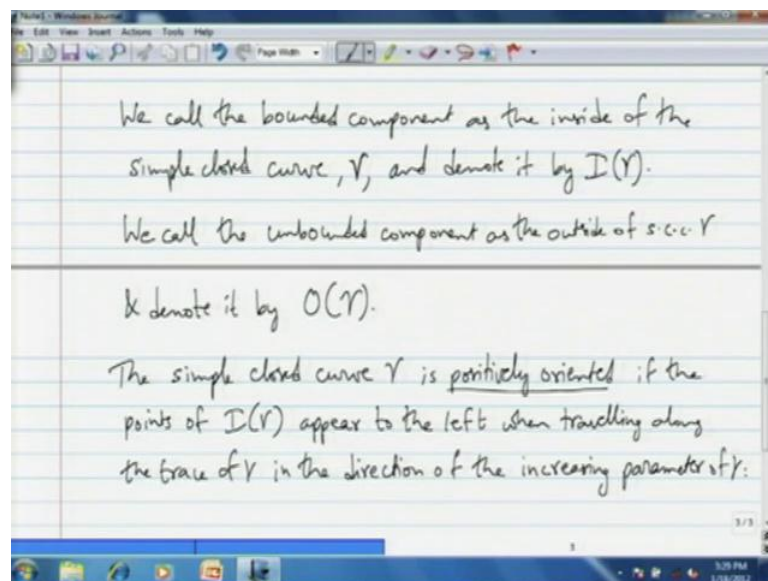 Note1 - Windows Journal
File Edit View Insert Actions Tools Help
Page Width
We call the bounded component as the inside of the
simple closed curve, γ, and denote it by I(γ).
We call the unbounded component as the outside of s.c.c. γ
& denote it by O(γ).
The simple closed curve γ is positively oriented if the
points of I(γ) appear to the left when travelling along
the trace of γ in the direction of the increasing parameter of γ.
3/3
3
3:29 PM
1/18/2012